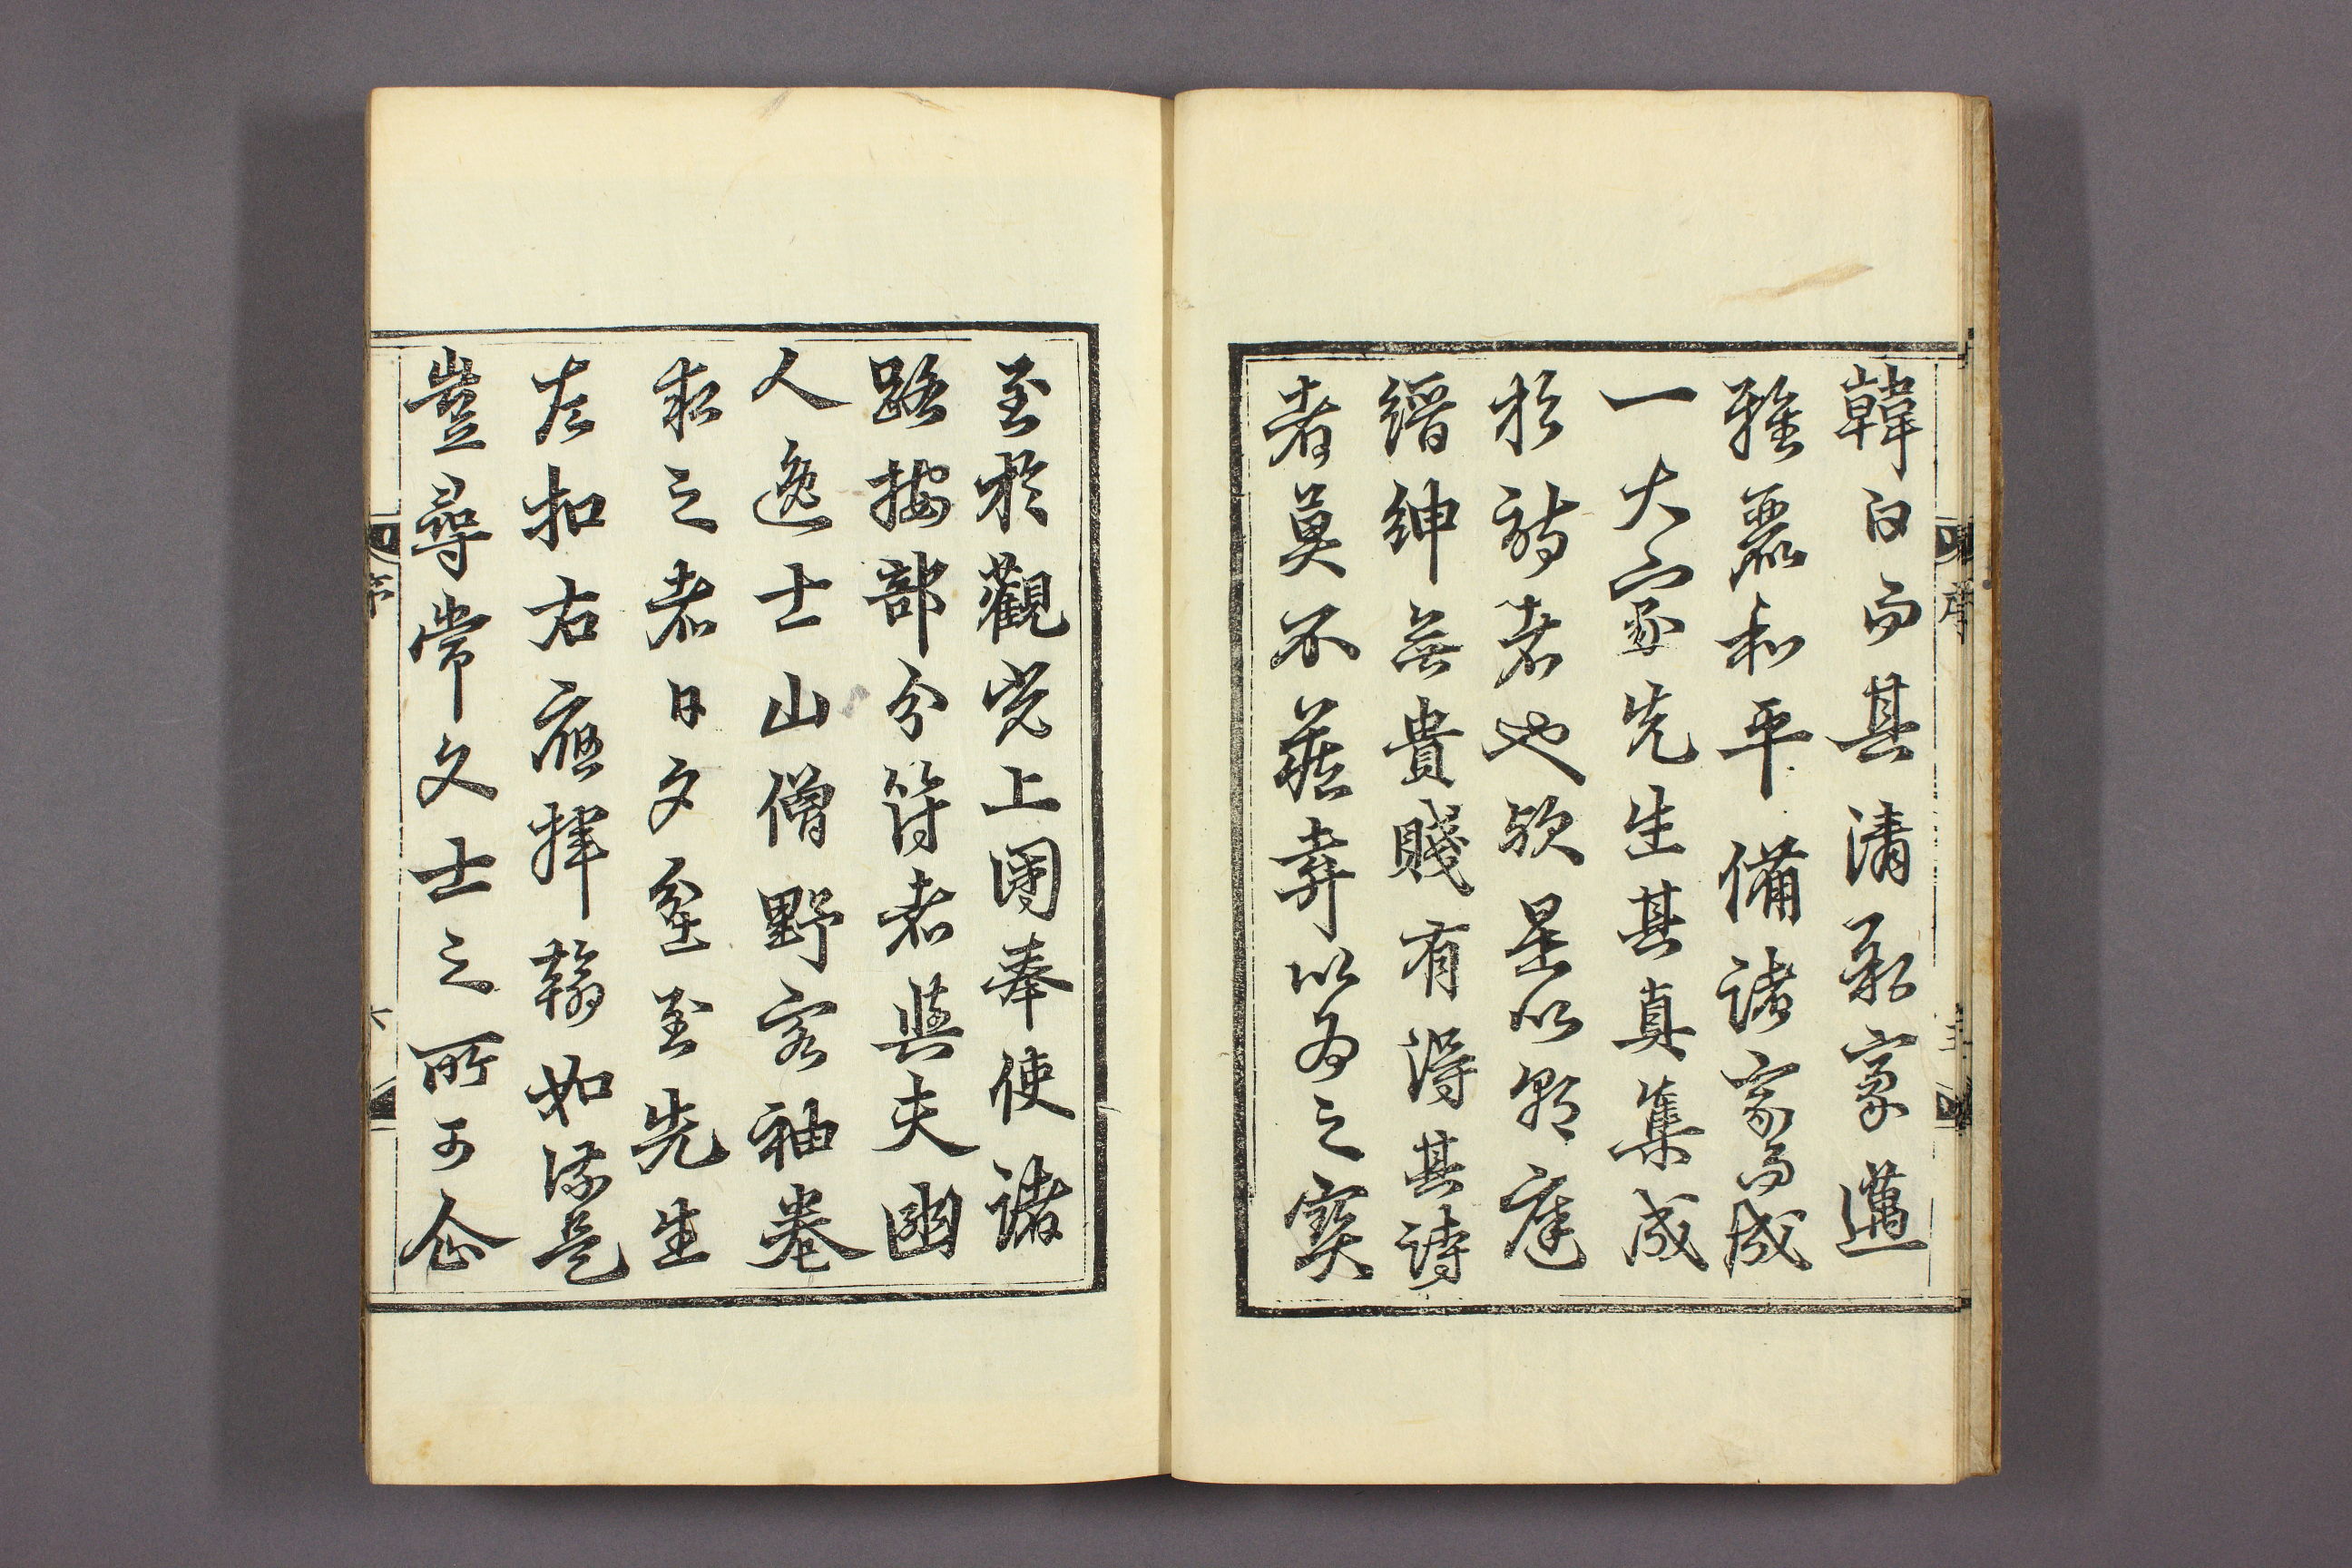 韓白而其清新豪邁
雅麗和平備諸家而成
一大家先生其真集成
於詩者也歟是以朝廷
縉紳無貴賤有得其詩
者莫不藏弆以為之寶
至於觀光上國奉使諸
路按部分符者與夫幽
人逸士山僧野客袖卷
求之者日夕坌至先生
左扣右應揮翰如流是
豈尋常文士之所可企